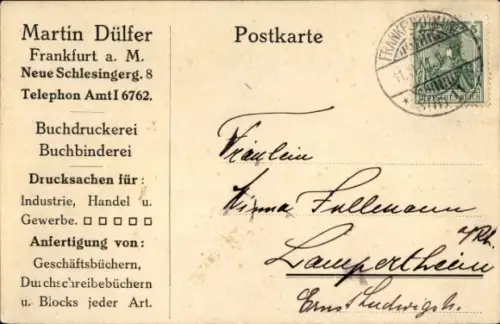 Martin Dülfer
Frankfurt a. M.
Neue Schlesingerg. 8
Telephon Amt I 6762.
Buchdruckerei
Buchbinderei
Drucksachen für:
Industrie, Handel u.
Gewerbe.
Anfertigung von:
Geschäftsbüchern,
Durchschreibebüchern
u. Blocks jeder Art.
Postkarte
FRANKFURT
Fräulein
Follemann
a/Rh.
Lampertheim
Ernst Ludwigstr.